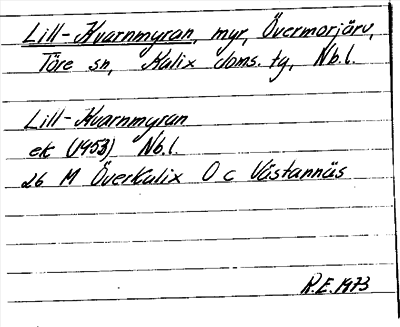 Lill-Kvarnmyran, myr, Övermorjärv,
Töre sn, Kalix doms. tg, Nb.l.
Lill-Kvarnmyran
ek (1953) Nb.l
26 M Överkalix O c Västannäs
R.E. 1973